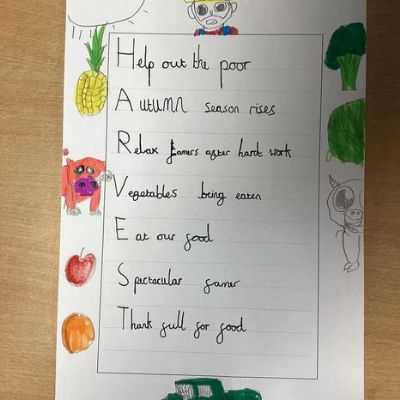 Help out the poor
Autumn season rises
Relax farmers after hard work
Vegetables being eaten
Eat our food
Spectacular farmer
Thank full for food